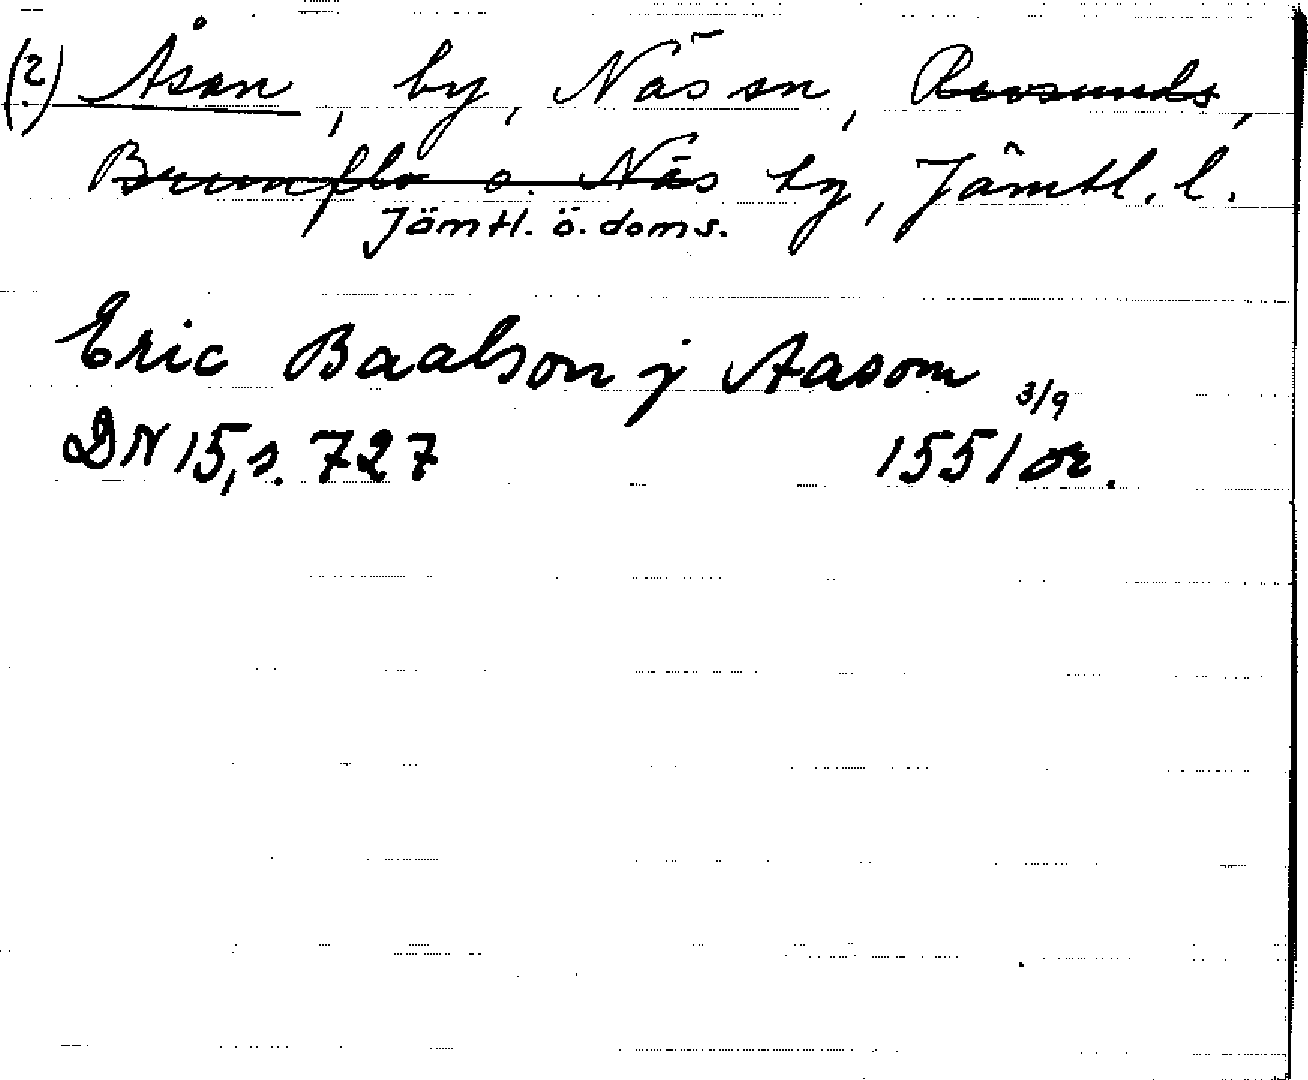 (?) Åsan, by, Näs sn, Revsunds,
Brunflo o. Näs by, Jämtl. l.
Jämtl. ö. doms.
Eric Baalson j Aasom
3/9
DN 15, s. 727 1551 or.